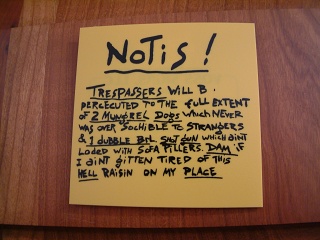 NOTIS!
TRESPASSERS WILL B
PERCECUTED TO THE FULL EXTENT
OF 2 MUNGREL DOGS WHICH NEVER
WAS OVER SOCHIBLE TO STRANGERS
& 1 DUBBLE BRL SHOT GUN WHICH AINT
LODED WITH SOFA PILLERS. DAM IF
I AINT GITTEN TIRED OF THIS
HELL RAISIN ON MY PLACE